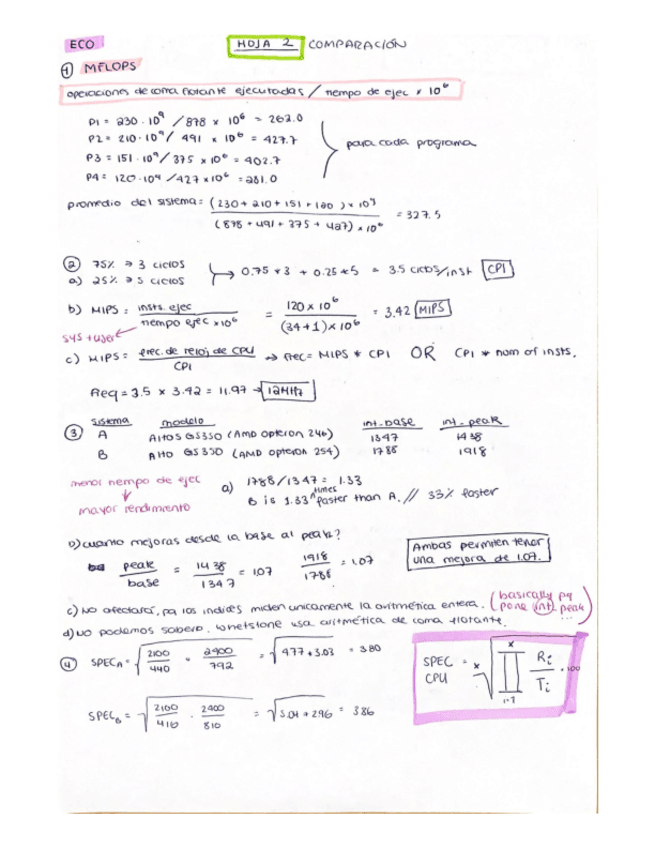 ECO HOJA 2 COMPARACIÓN
1 MFLOPS
operaciones de coma flotante ejecutadas / tiempo de ejec x 10^6
P1 = 230 · 10^9 / 878 x 10^6 = 262.0
P2 = 210 · 10^9 / 491 x 10^6 = 427.7
P3 = 151 · 10^9 / 375 x 10^6 = 402.7
P4 = 120 · 10^9 / 427 x 10^6 = 281.0
para cada programa
promedio del sistema = (230 + 210 + 151 + 120) x 10^9 / (878 + 491 + 375 + 427) x 10^6 = 327.5
2 75% → 3 ciclos
a) 25% → 5 ciclos
→ 0.75 * 3 + 0.25 * 5 = 3.5 ciclos/inst CPI
b) MIPS = insts. ejec / tiempo ejec x 10^6 = 120 x 10^6 / (34+1) x 10^6 = 3.42 MIPS
sys + user
c) MIPS = frec. de reloj de CPU / CPI → frec = MIPS * CPI OR CPI * num of insts.
freq = 3.5 x 3.42 = 11.97 → 12MHz
3 sistema modelo int_base int_peak
A Altos G5350 (AMD opteron 246) 1347 1438
B Alto G5350 (AMD opteron 254) 1788 1918
menos tiempo de ejec
↓
mayor rendimiento
a) 1788/1347 = 1.33
B is 1.33 times faster than A. // 33% faster
b) cuanto mejoras desde la base al peak?
peak / base = 1438 / 1347 = 1,07 1918 / 1788 = 1.07
Ambas permiten tener
una mejora de 1.07.
c) No afectará, pq los indices miden unicamente la aritmética entera. (basically pq
pone int peak ...)
d) No podemos saberlo. whetstone usa aritmética de coma flotante.
4 SPEC_A = √(2100/440 · 2400/792) = √(4.77 * 3.03) = 3.80
SPEC_B = √(2100/416 · 2400/810) = √(5.04 * 2.96) = 3.86
SPEC CPU = x√(∏ x i=1 Ri / Ti) · 100